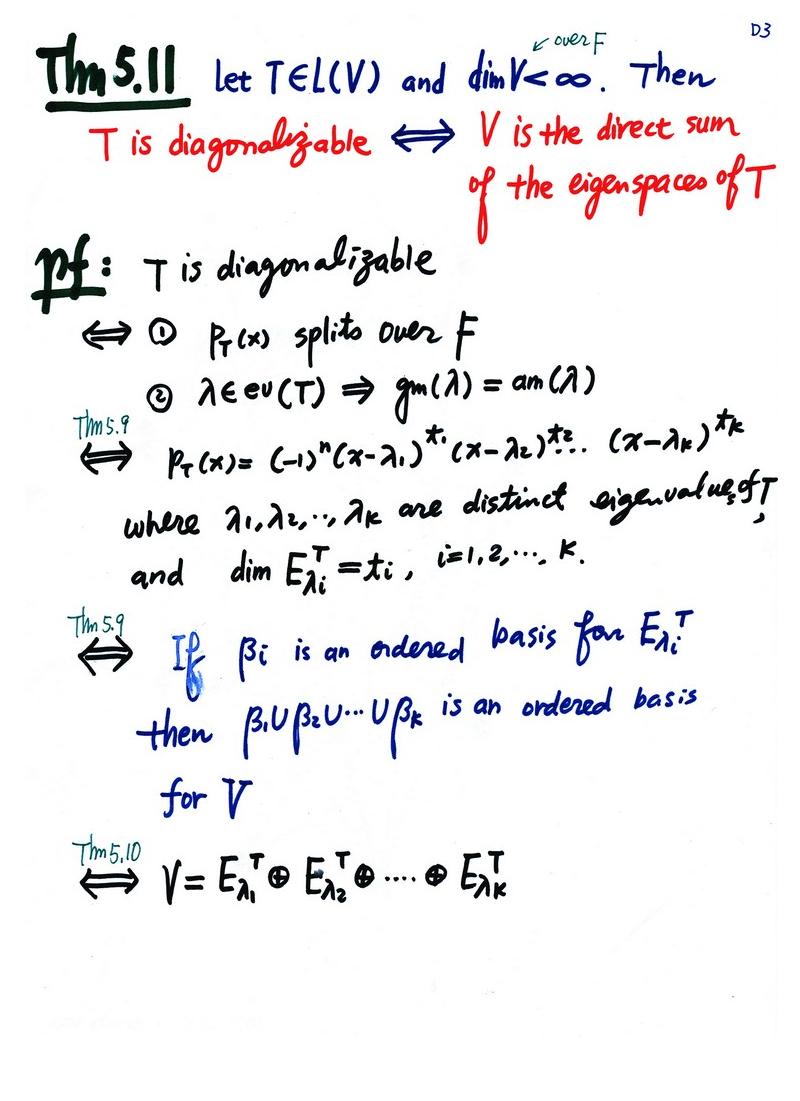 D3
← over F
Thm 5.11 let T∈L(V) and dim V < ∞. Then
T is diagonalizable ⟺ V is the direct sum
of the eigenspaces of T
pf: T is diagonalizable
⟺ ① P_T(x) splits over F
② λ∈ev(T) ⇒ gm(λ) = am(λ)
Thm 5.9
⟺ P_T(x) = (-1)^n (x-λ₁)^{t₁} (x-λ₂)^{t₂} ... (x-λ_k)^{t_k}
where λ₁, λ₂, .., λ_k are distinct eigenvalues of T,
and dim E_{λ_i}^T = t_i, i=1,2,..., k.
Thm 5.9
⟺ If β_i is an ordered basis for E_{λ_i}^T
then β₁∪β₂∪...∪β_k is an ordered basis
for V
Thm 5.10
⟺ V = E_{λ₁}^T ⊕ E_{λ₂}^T ⊕ .... ⊕ E_{λ_k}^T